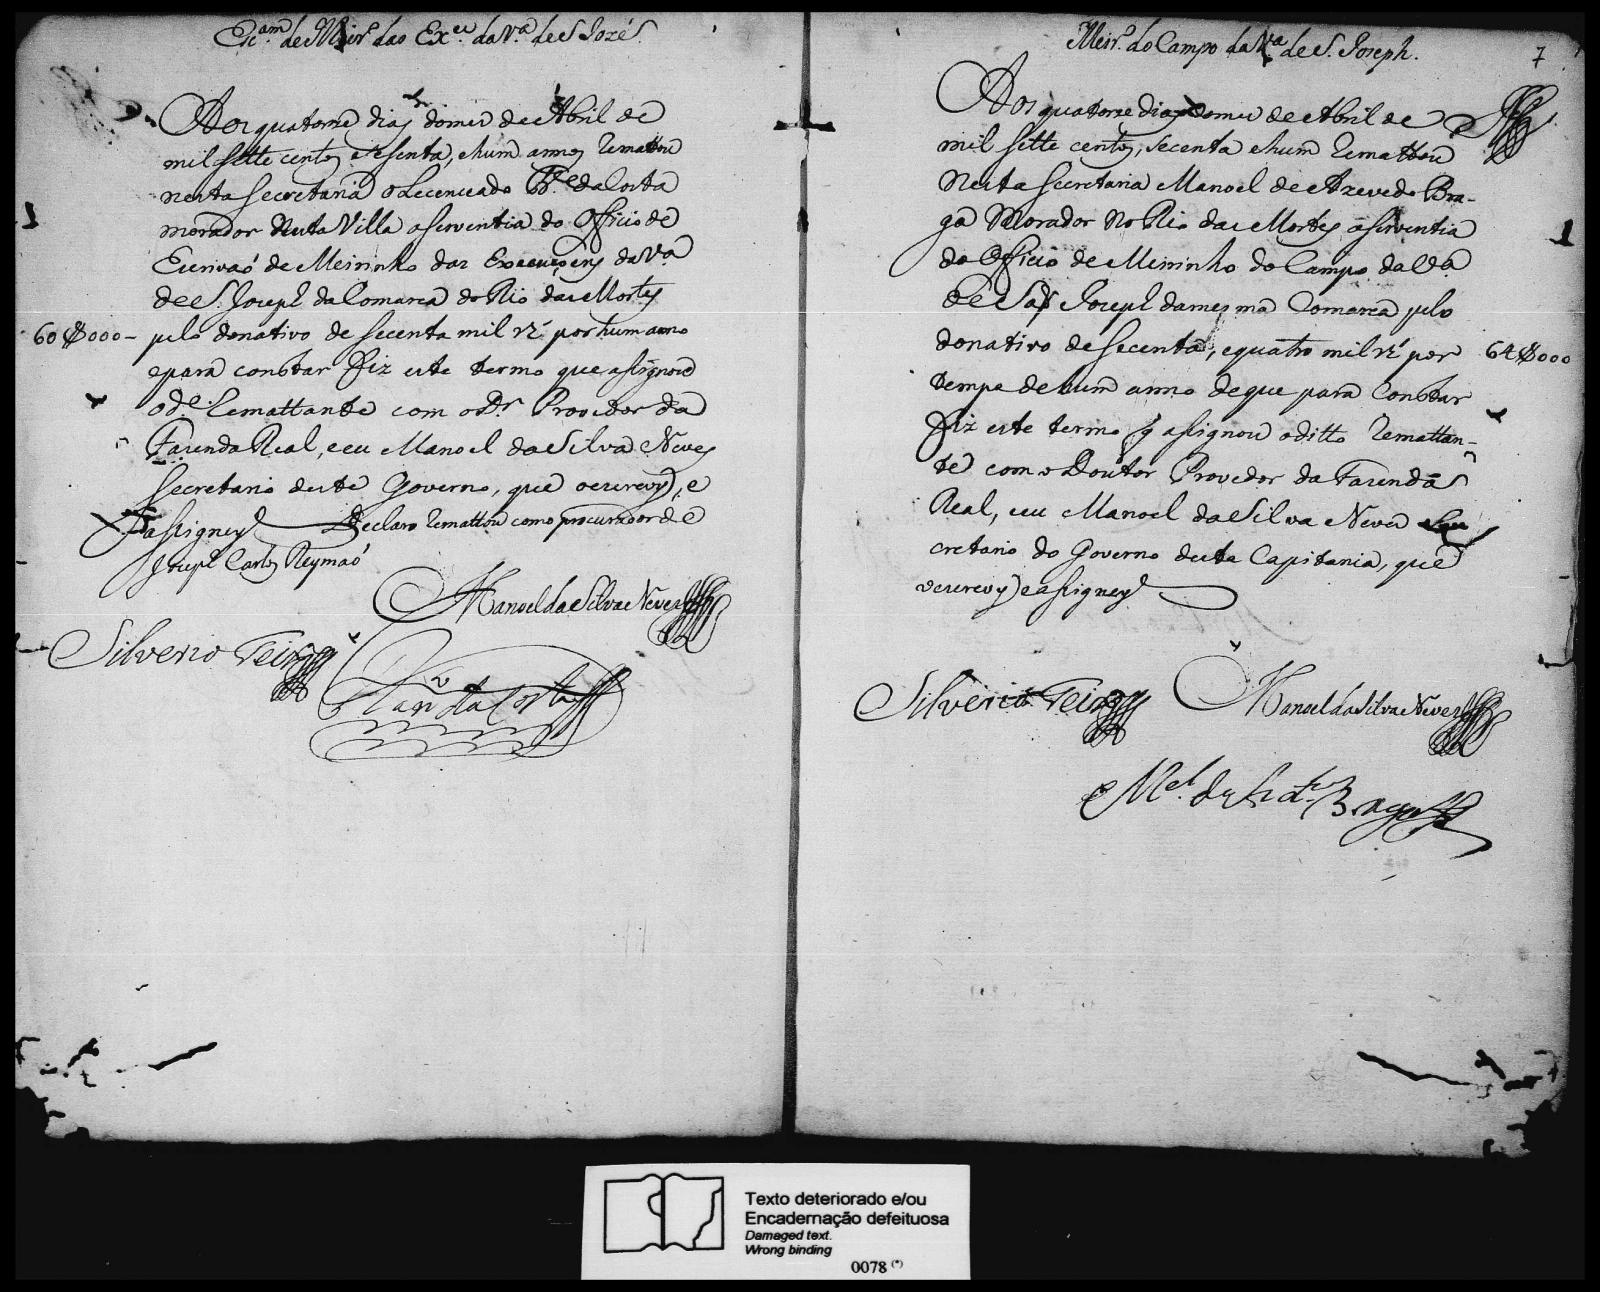 Escam de Meir.º das Ex.ee da V.ª de S. Jozé
Aos quatorze dias do mez de Abril de
mil sette centos, e sesenta, e hum annos Remattou
nesta Secretaria o Lecenceado da Costa
morador nesta Villa a serventia do Officio de
Escrivaõ de Meirinho das Execuçoens da V.ª
de S. Joseph da Comarca do Rio das Mortes
60$000 - pelo donativo de secenta mil rs por hum anno
e para constar fiz este termo que asignou
o d.º Remattante com o D.r Provedor da
Fazenda Real, e eu Manoel da Silva Neves
Secretario deste Governo, que o escrevy, e
asigney Declaro Remattou como procurador de
Joseph Carlos Reymaõ
Manoel da Silva Neves
Silverio Teix.ª
da Costa
Meir.º do Campo da V.ª de S. Joseph.
7
Aos quatorze dias do mez de Abril de
mil sette centos, secenta e hum Remattou
nesta Secretaria Manoel de Azevedo Bra-
ga Morador no Rio das Mortes a serventia
do Officio de Meirinho do Campo da V.ª
de Saõ Joseph da mesma Comarca pelo
donativo de secenta, e quatro mil rs por 64$000
tempo de hum anno de que para constar
fiz este termo q asignou o ditto Remattan-
te com o Doutor Provedor da Fazenda
Real, e eu Manoel da Silva Neves Se
cretario do Governo desta Capitania, que
o escrevy e asigney
Silverio Teix.ª Manoel da Silva Neves
M.el de Braga
Texto deteriorado e/ou
Encadernação defeituosa
Damaged text.
Wrong binding
0078 (*)